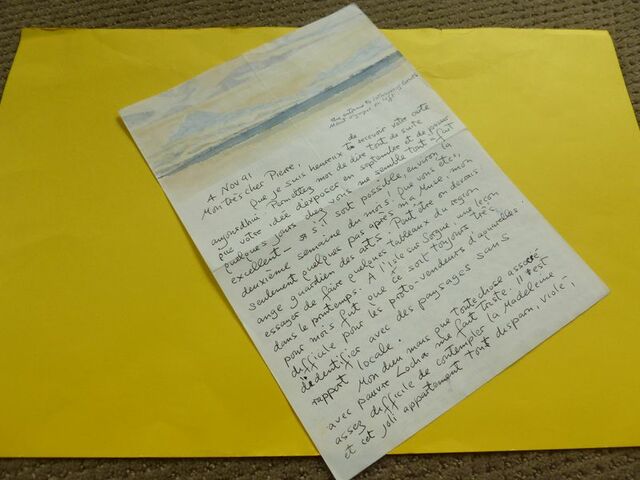 4 Nov 91
Mon très cher Pierre,
Que je suis heureux de recevoir votre carte
aujourdhui. Permettez moi de dire tout de suite
que votre idée d'exposer en septembre et de passer
quelques jours chez vous me semble tout à fait
excellent — si s'il soit possible, environ la
deuxième semaine du mois! Que vous êtes,
seulement quelques pas après ma Muse, mon
ange guardien des arts. Peut être on devrais
essayer de faire quelques tableaux du region
dans le printemps. A l'Isle sur Sorgue, une leçon
pour mois fut que ce soit toujours très
difficile pour les proto-vendeurs d'aquarelles
d'identifier avec des paysages sans
rapport locale.
Mon dieu mais que toute chose associé
avec pauvre Locha me faut triste. Il est
assez difficile de contempler la Madeleine
et cet joli appartement tout disparu, violé,